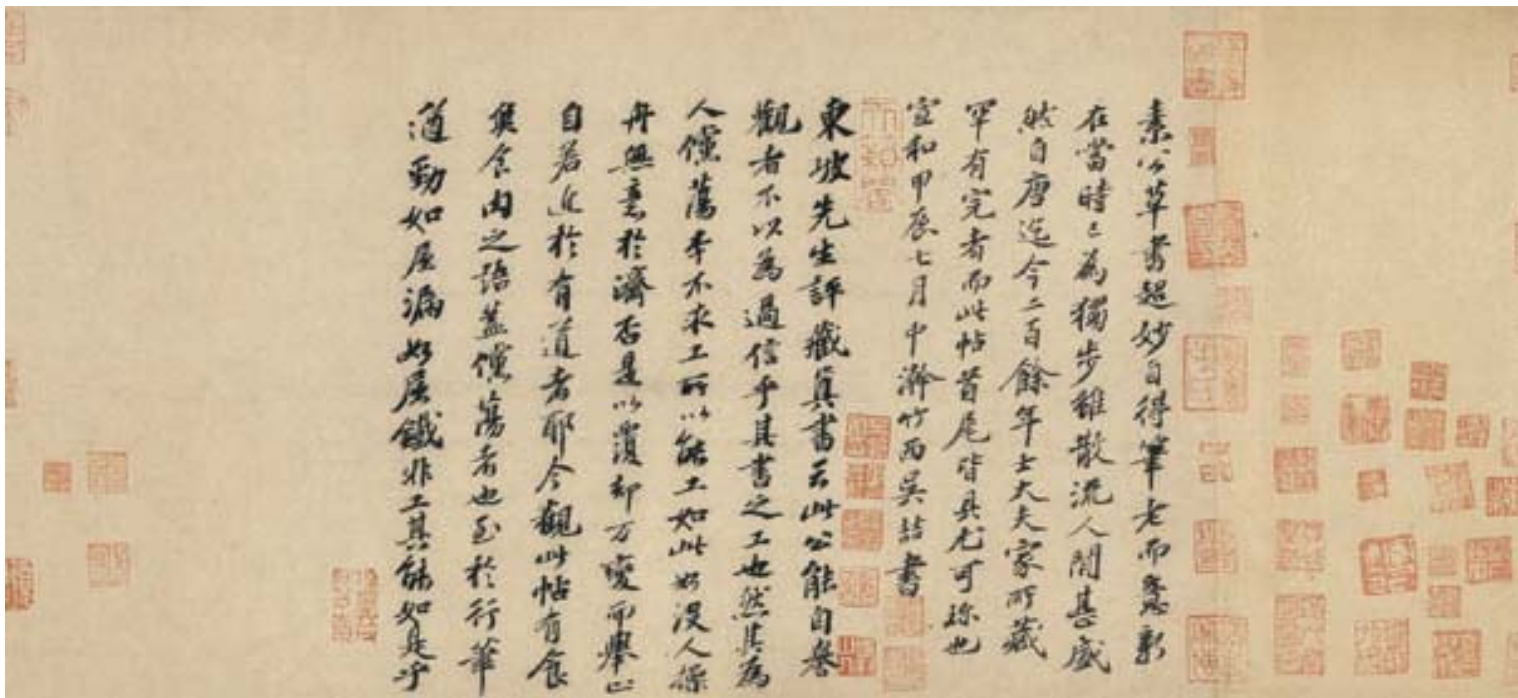 素公草書超妙自得筆老而意新
在當時已為獨步雖散流人間甚盛
然自唐迄今二百餘年士大夫家所藏
罕有完者而此帖首尾皆具尤可珍也
宣和甲辰七月中澣竹西吳喆書
東坡先生評藏真書云此公能自譽
觀者不以為過信乎其書之工也然其為
人儻蕩本不求工所以能工如此如沒人操
舟無意於濟否是以覆却万變而舉止
自若近於有道者耶今觀此帖有食
魚食肉之語蓋儻蕩者也至於行筆
遒勁如屋漏如屈鐵非工其能如是乎